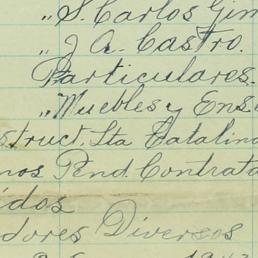 „ S. Carlos Gim
„ J. A. Castro.
Particulares.
„ Muebles y Ens
struct. Sta Catalina
nos Pend. Contrata
idos
dores Diversos